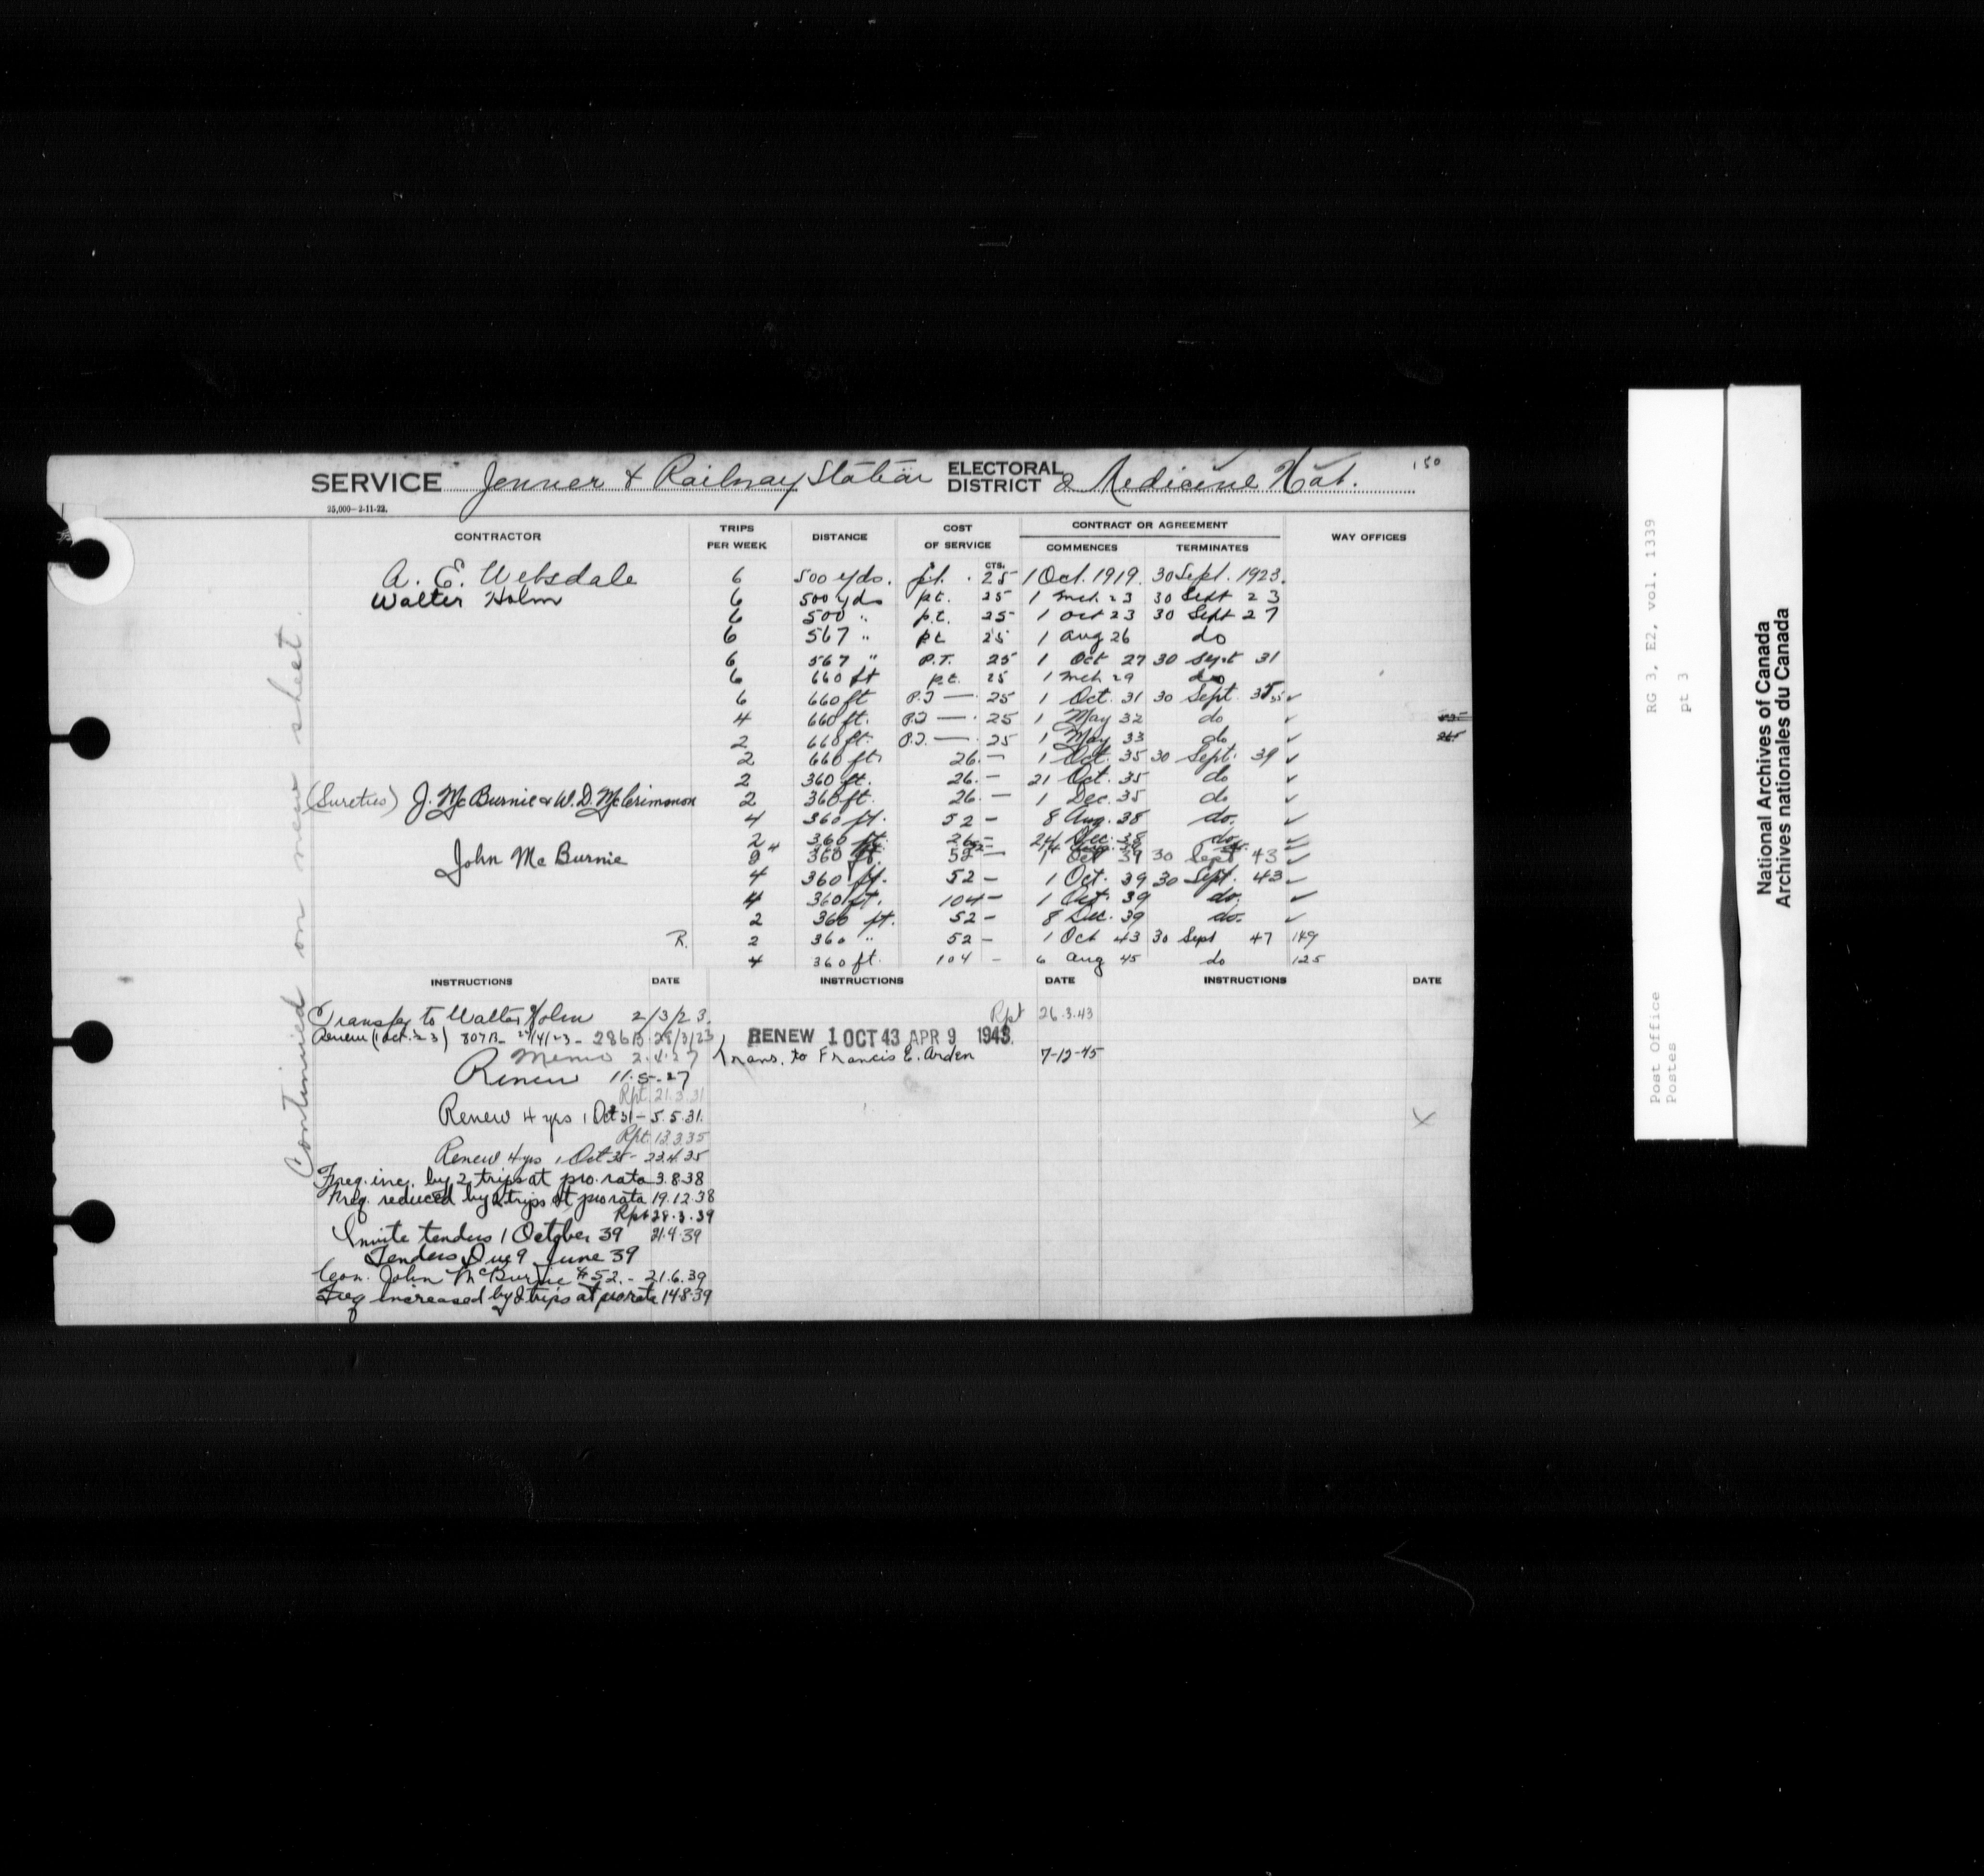 150
SERVICE Jenner & Railway Station ELECTORAL DISTRICT Medicine Hat.
25,000-2-11-22.
CONTRACTOR TRIPS PER WEEK DISTANCE COST OF SERVICE CONTRACT OR AGREEMENT WAY OFFICES
COMMENCES TERMINATES
CTS.
A. E. Websdale 6 500 yds. pt. 25 1 Oct. 1919. 30 Sept. 1923.
Walter Holm 6 500 yds pt. 25 1 Mch 23 30 Sept 23
6 500 " p.t. 25 1 Oct 23 30 Sept 27
6 567 " pt 25 1 Aug 26 do
6 567 " P.T. 25 1 Oct 27 30 Sept 31
6 660 ft pt. 25 1 Mch 29 do
6 660 ft P.T — 25 1 Oct. 31 30 Sept. 35 ✓
4 660 ft. P.T — 25 1 May 32 do ✓
2 660 ft. P.T. — 25 1 May 33 do ✓
2 660 ft. 26.— 1 Oct. 35 30 Sept. 39 ✓
2 360 ft. 26.— 21 Oct. 35 do ✓
(Sureties) J. McBurnie & W.D. McCrimmon 2 360 ft. 26.— 1 Dec. 35 do ✓
4 360 ft. 52 — 8 Aug. 38 do. ✓
2 360 ft. 26 — 24 Dec. 38 do ✓
John McBurnie 2 360 ft. 52 — 1 Oct 39 30 Sept 43 ✓
4 360 ft. 52 — 1 Oct. 39 30 Sept. 43 ✓
4 360 ft. 104 — 1 Oct. 39 do. ✓
2 360 ft. 52 — 8 Dec. 39 do. ✓
R. 2 360 " 52 — 1 Oct 43 30 Sept 47 149
4 360 ft. 104 — 6 Aug 45 do 125
INSTRUCTIONS DATE INSTRUCTIONS DATE INSTRUCTIONS DATE
Transfer to Walter Holm 2/3/23.
Renew (1 Oct. 23) 807B- 27/4/23 - 286B 28/3/23
Memo 2.4.27
Renew 11-5-27
Rpt. 21.3.31
Renew 4 yrs 1 Oct 31 - 5.5.31.
Rpt. 13.3.35
Renew 4 yrs 1 Oct 35 - 23.4.35
Freq. inc. by 2 trips at pro. rata 3.8.38
Freq. reduced by 2 trips at pro rata 19.12.38
Rpt 28.3.39
Invite tenders 1 October 39 21.4.39
Tenders Due 9 June 39
Con. John McBurnie $52.- 21.6.39
Freq increased by 2 trips at pro rata 14.8.39
Rpt 26.3.43
RENEW 1 OCT 43 APR 9 1943
Trans. to Francis E. Arden 7-12-45
X
Continued on new sheet.
Post Office RG 3, E2, vol. 1339
Postes pt 3
National Archives of Canada
Archives nationales du Canada